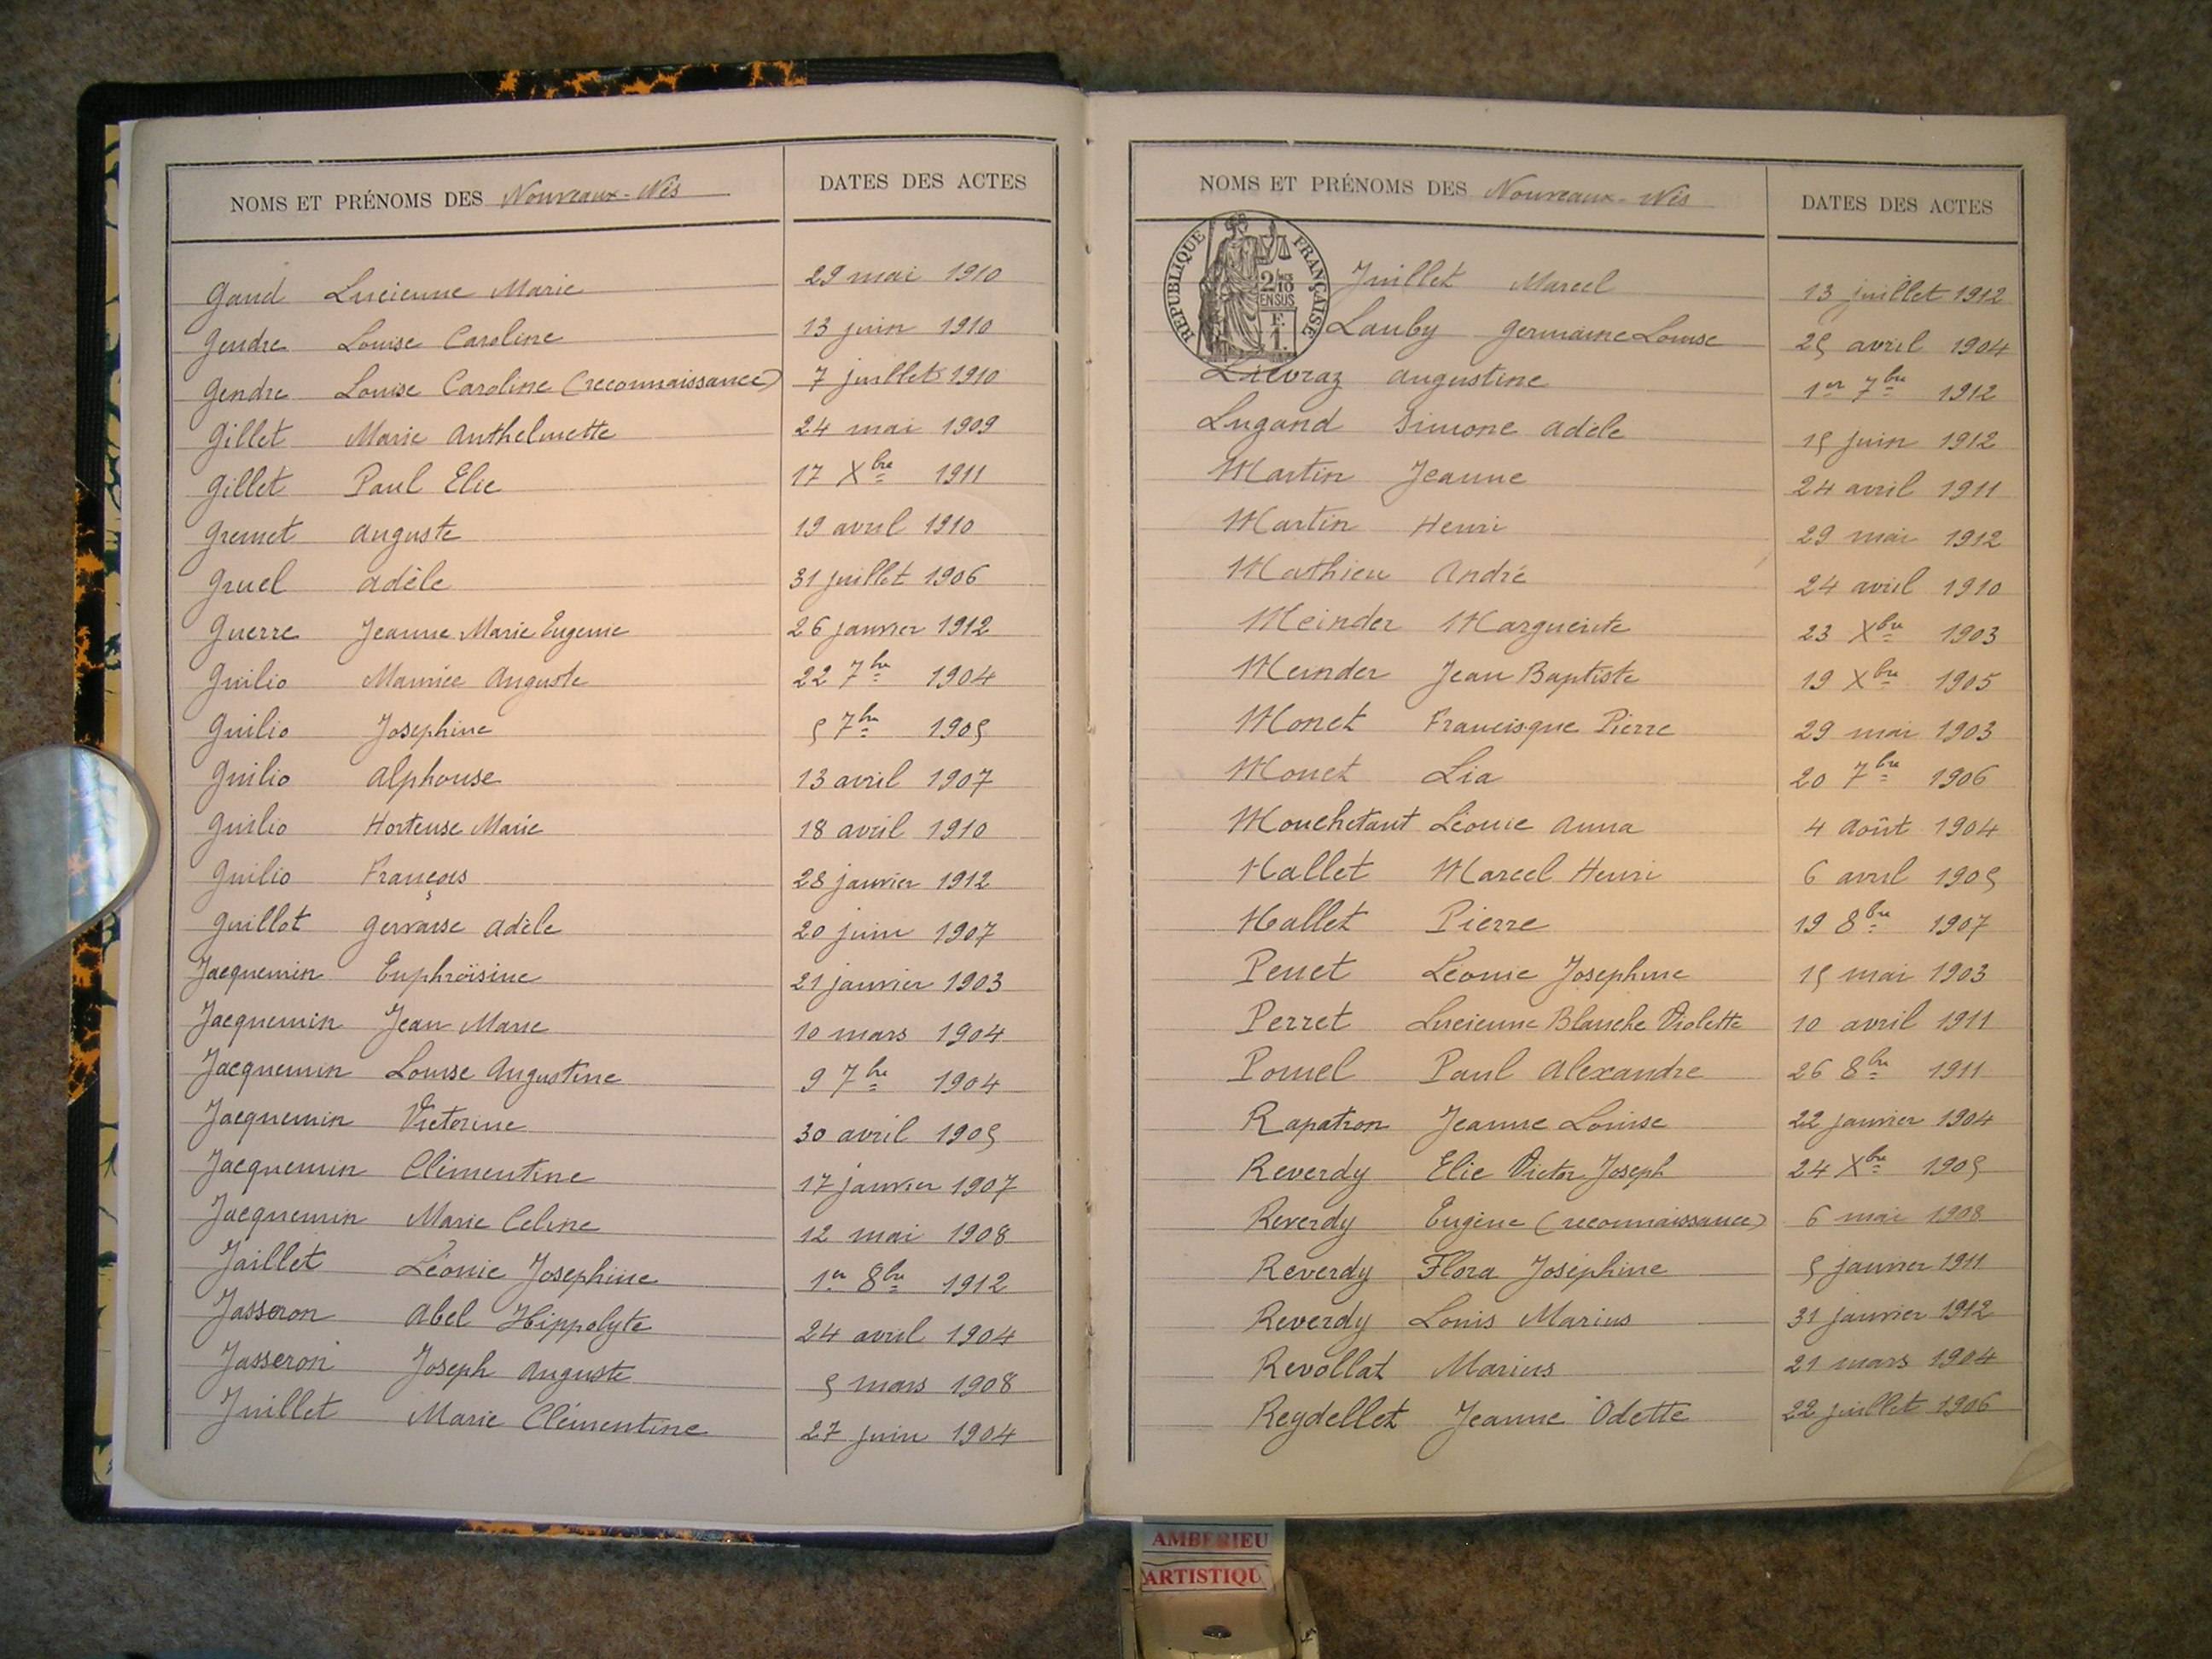 NOMS ET PRÉNOMS DES Nouveaux-Nés DATES DES ACTES
Gaud Lucienne Marie 29 mai 1910
Gendre Louise Caroline 13 juin 1910
Gendre Louise Caroline (reconnaissance) 7 juillet 1910
Gillet Marie Anthelmette 24 mai 1909
Gillet Paul Elie 17 Xbre 1911
Gremet Auguste 19 avril 1910
Gruel Adèle 31 juillet 1906
Guerre Jeanne Marie Eugenie 26 janvier 1912
Guilio Maurice Auguste 22 7bre 1904
Guilio Josephine 5 7bre 1905
Guilio Alphonse 13 avril 1907
Guilio Hortense Marie 18 avril 1910
Guilio François 28 janvier 1912
Guillot Gervaise Adèle 20 juin 1907
Jacquemin Euphroïsine 21 janvier 1903
Jacquemin Jean Marie 10 mars 1904
Jacquemin Louise Augustine 9 7bre 1904
Jacquemin Victorine 30 avril 1905
Jacquemin Clémentine 17 janvier 1907
Jacquemin Marie Celine 12 mai 1908
Jaillet Léonie Josephine 1er 8bre 1912
Jasseron Abel Hippolyte 24 avril 1904
Jasseron Joseph Auguste 5 mars 1908
Juillet Marie Clémentine 27 juin 1904
NOMS ET PRÉNOMS DES Nouveaux-Nés DATES DES ACTES
RÉPUBLIQUE FRANÇAISE
2/10
EN SUS
F.
1.
Juillet Marcel 13 juillet 1912
Lauby Germaine Louise 25 avril 1904
Liévraz Augustine 1er 7bre 1912
Lugand Simone Adèle 15 juin 1912
Martin Jeanne 24 avril 1911
Martin Henri 29 mai 1912
Mathieu André 24 avril 1910
Meinder Marguerite 23 Xbre 1903
Meinder Jean Baptiste 19 Xbre 1905
Monet Francisque Pierre 29 mai 1903
Monet Lia 20 7bre 1906
Mouchetant Léonie Anna 4 Août 1904
Nallet Marcel Henri 6 avril 1905
Nallet Pierre 19 8bre 1907
Penet Léonie Josephine 15 mai 1903
Perret Lucienne Blanche Violette 10 avril 1911
Pomel Paul Alexandre 26 8bre 1911
Rapatron Jeanne Louise 22 janvier 1904
Reverdy Elie Victor Joseph 24 Xbre 1905
Reverdy Eugène (reconnaissance) 6 mai 1908
Reverdy Flora Joséphine 5 janvier 1911
Reverdy Louis Marius 31 janvier 1912
Revollat Marius 21 mars 1904
Reydellet Jeanne Odette 22 juillet 1906
AMBERIEU
ARTISTIQU